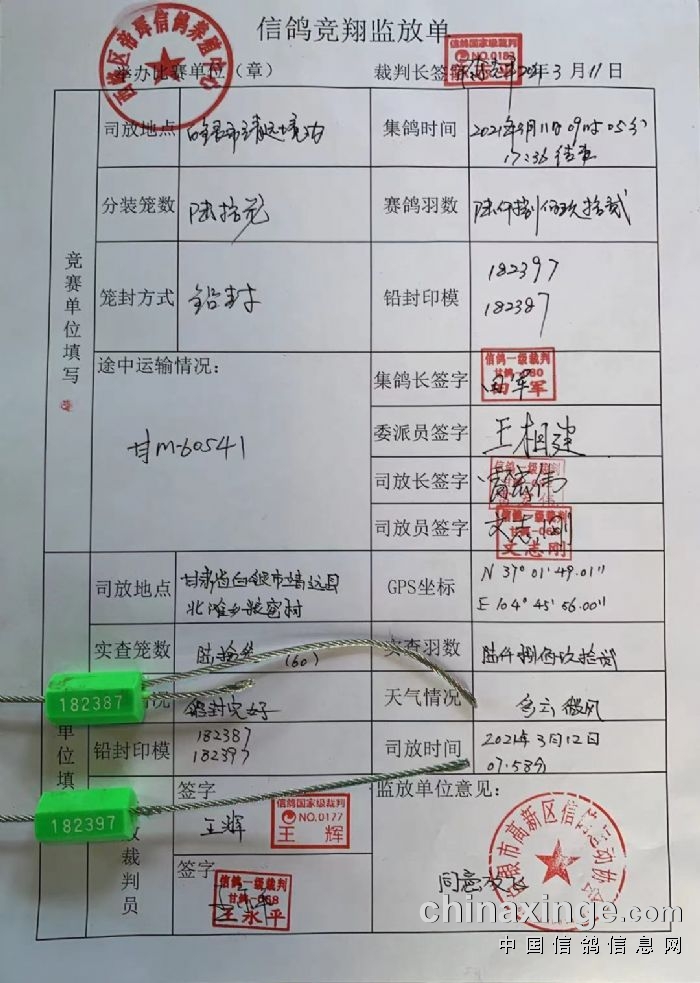 信鸽竞翔监放单
举办比赛单位（章）
裁判长签字
3月11日
信鸽国家级裁判
NO.0183
竞赛单位填写
司放地点
集鸽时间
2021年3月11日09时05分
17:36结束
分装笼数
陆拾笼
赛鸽羽数
陆仟捌佰玖拾贰
笼封方式
铅封
铅封印模
182397
182387
途中运输情况：
甘M-60541
集鸽长签字
信鸽一级裁判
田军
委派员签字
王相建
司放长签字
信鸽一级裁判
司放员签字
文志刚
信鸽一级裁判
文志刚
司放地点
甘肃省白银市靖远县
GPS坐标
N 37° 01' 49.01"
E 104° 45' 56.00"
实查笼数
(60)
实查羽数
陆仟捌佰玖拾贰
182387
况
铅封完好
天气情况
多云 微风
单位填
铅封印模
182387
182397
司放时间
2021年3月12日
07.58分
182397
裁判员
签字
王辉
信鸽国家级裁判
NO.0177
王辉
签字
信鸽一级裁判
王永平
监放单位意见：
银市高新区信鸽运动协
同意放飞
chinaxinge.com
中国信鸽信息网